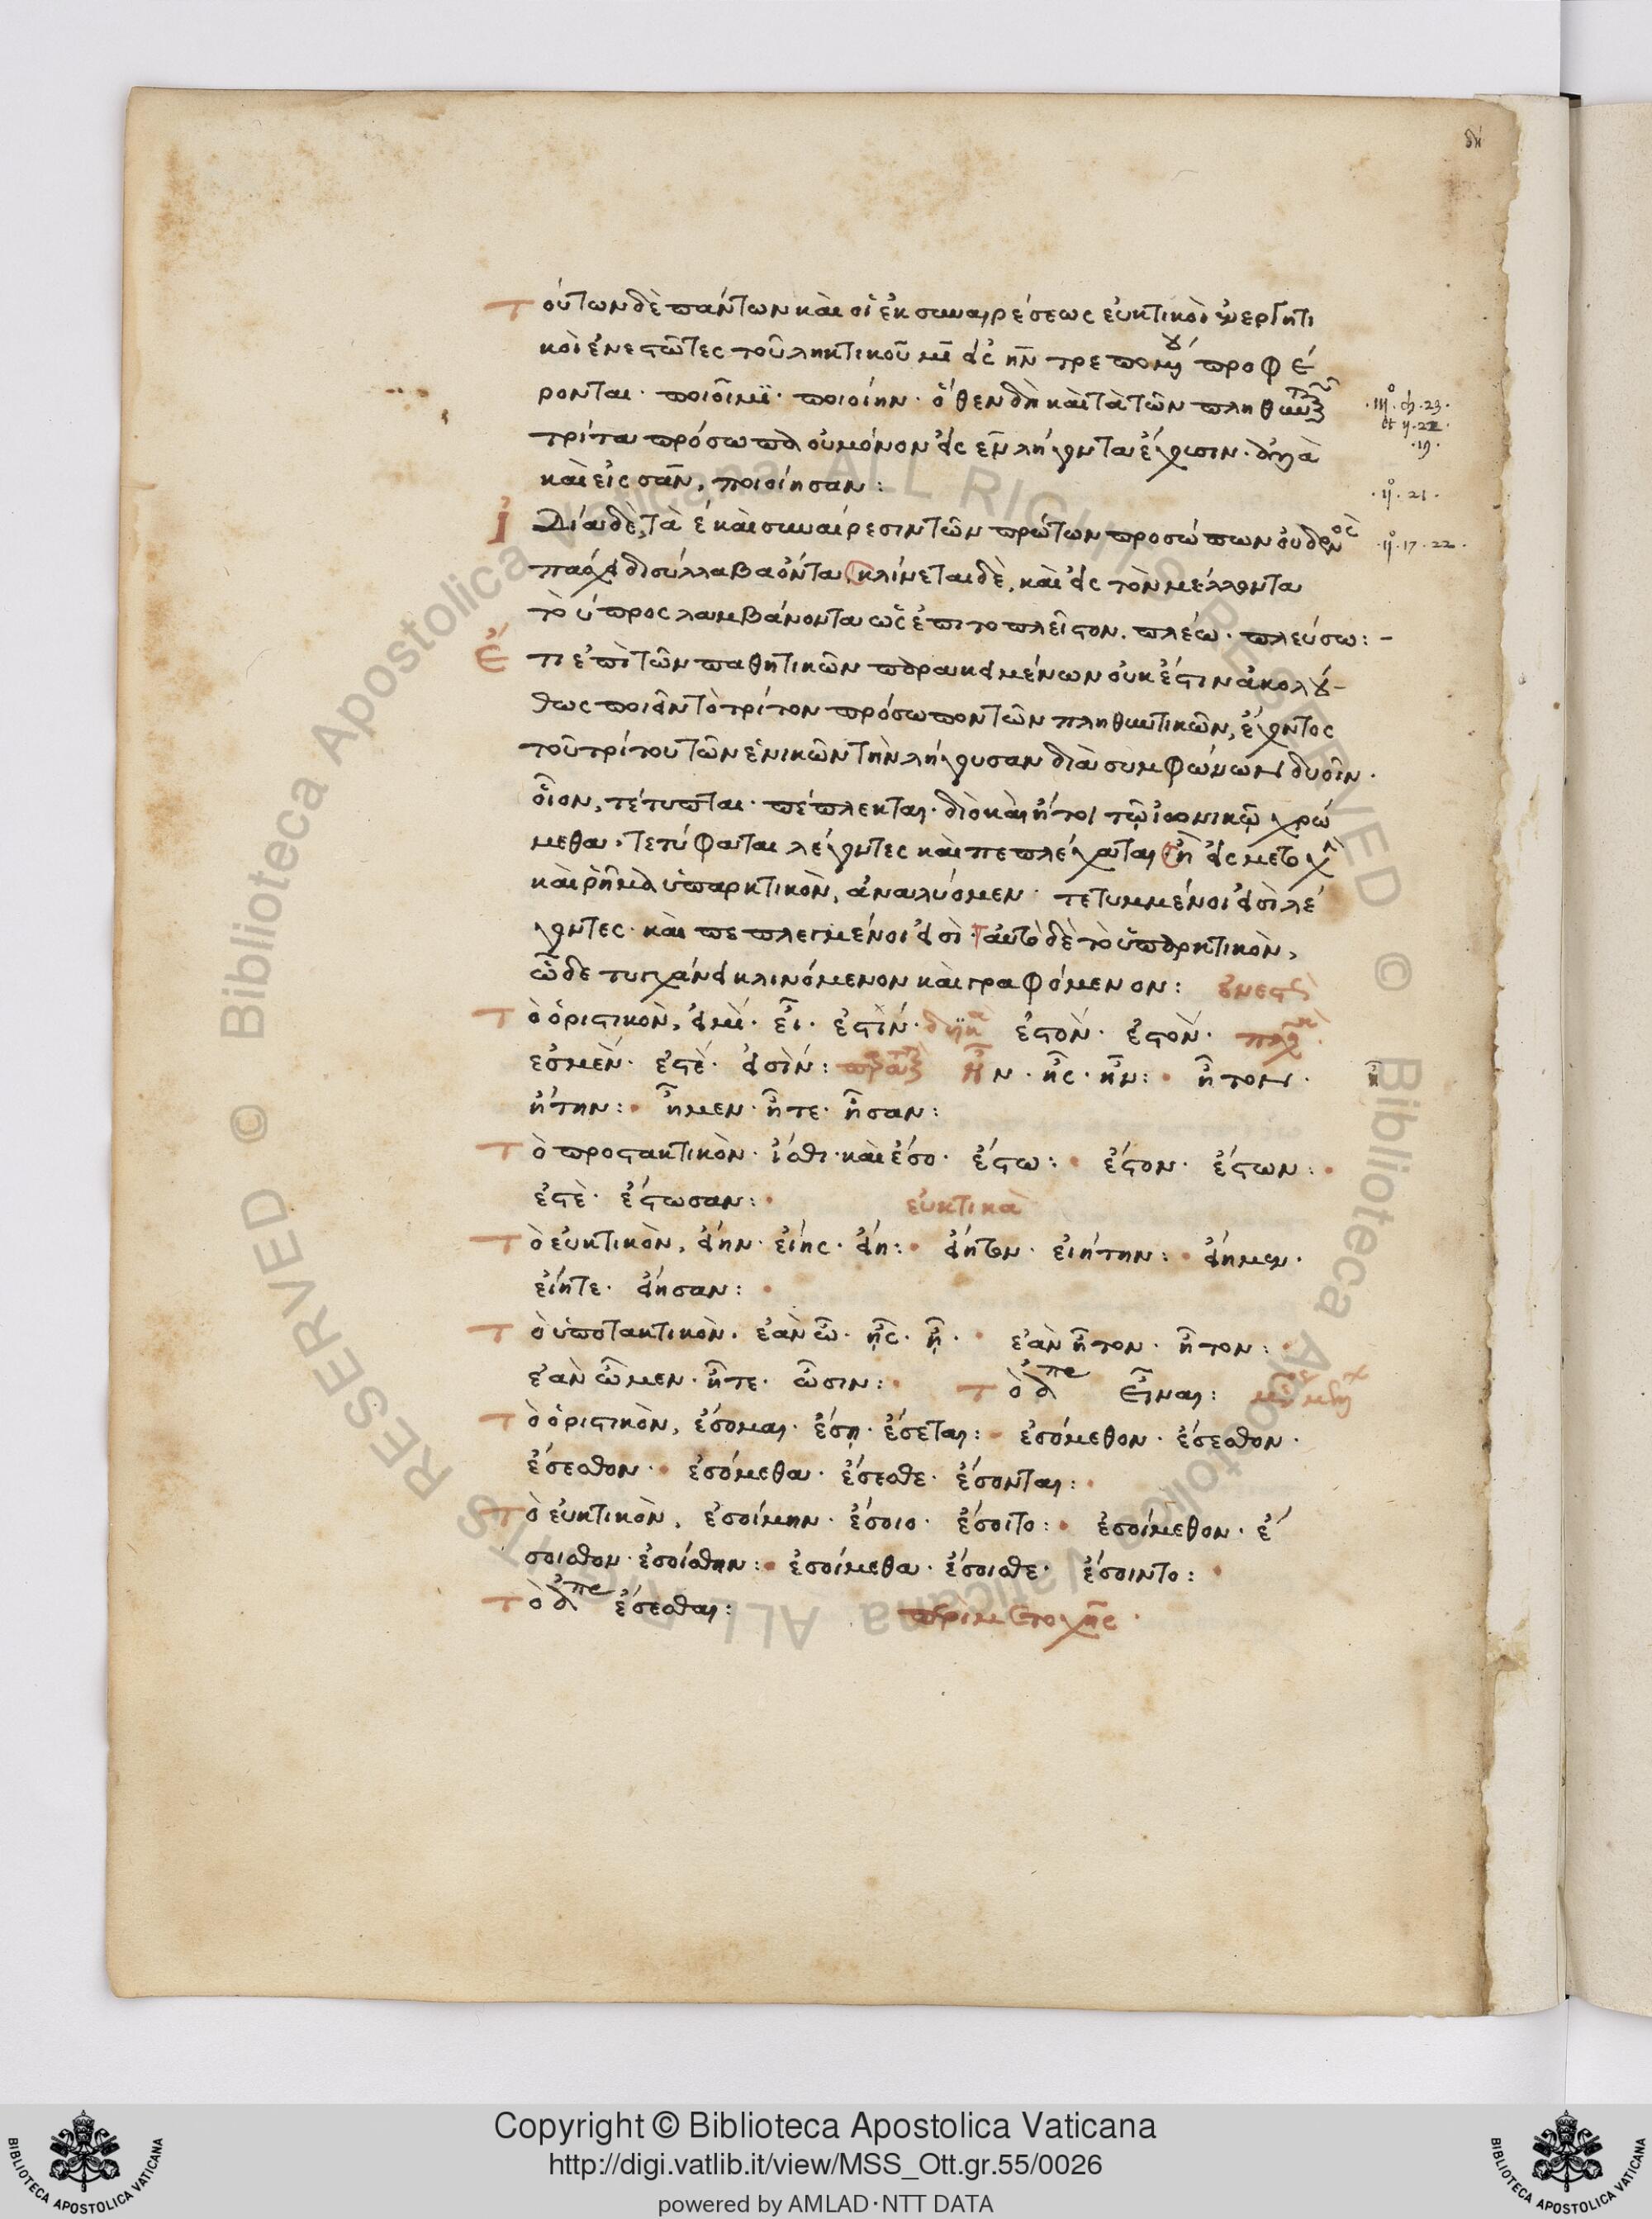 Τούτων δὲ πάντων καὶ οἱ ἐκ συναιρέσεως εὐκτικοὶ ἐνεργητι
κοὶ ἐνεστῶτες τοῦ ληκτικοῦ μῖ εἰς ην τρεπομένου προφέ
ρονται· ποιοῖμι· ποιοίην· ὅθεν δὴ καὶ τὰ τῶν πληθυντικῶν
τρίτα πρόσωπα οὐ μόνον εἰς εν λήγοντα ἔχουσιν· ἀλλὰ
καὶ εἰς σαν, ποιοίησαν:
·iiiº· ch· 23·
et ii· 22·
·19·
·iiº· 21·
Διὰ δὲ τὰ καὶ συναίρεσιν τῶν πρώτων προσώπων οὐδενὸς
πάσχει δισύλλαβα ὄντα κλίνεται δὲ, καὶ εἰς τὸν μέλλοντα
·iiº· 17· 22·
τὸ υ προσλαμβάνοντα ὡς ἐπιτοπλεῖστον. πλέω· πλεύσω:-
Ἔτι ἐπὶ τῶν παθητικῶν παρακειμένων οὐκ ἔστιν ἀκολού-
θως ποιεῖν τὸ τρίτον πρόσωπον τῶν πληθυντικῶν, ἔχοντος
τοῦ τρίτου τῶν ἑνικῶν τὴν λήγουσαν διὰ συμφώνων δυοῖν·
οἷον, τέτυπται· πέπλεκται· διὸ καὶ ἤτοι τῷ ἰωνικῷ χρώ
μεθα· τετύφαται λέγοντες καὶ πεπλέχαται ἢ εἰς μετοχὴν
καὶ ῥῆμα ὑπαρκτικὸν, ἀναλύομεν· τετυμμένοι εἰσὶ λέ
γοντες· καὶ πεπλεγμένοι εἰσί· ταυτὸ δὲ τὸ ὑπαρκτικὸν,
ὧδε τυγχάνει κλινόμενον καὶ γραφόμενον: ἐνεστὼς
Τὸ ὁριστικὸν, εἰμὶ· εἶ· ἐστίν· δυϊκὰ ἐστὸν· ἐστὸν· πληθ
ἐσμὲν· ἐστὲ· εἰσὶν: παρατατικ ἦν· ἦς· ἦν: ἦτον·
ἤτην: ἦμεν· ἦτε· ἦσαν:
Τὸ προστακτικὸν· ἴσθι· καὶ ἔσο· ἔστω: ἔστον· ἔστων:
ἐστὲ· ἔστωσαν: εὐκτικὰ
Τὸ εὐκτικὸν, εἴην· εἴης· εἴη: εἴητον· εἰήτην: εἴημεν·
εἴητε· εἴησαν:
Τὸ ὑποτακτικὸν. ἐὰν ὦ· ᾖς· ᾖ· ἐὰν ἦτον· ἦτον:
ἐὰν ὦμεν· ἦτε· ὦσιν: Τὸ ἀπε εἶναι:
Τὸ ὁριστικὸν, ἔσομαι· ἔσῃ· ἔσεται: ἐσόμεθον· ἔσεσθον·
ἔσεσθον· ἐσόμεθα· ἔσεσθε· ἔσονται:
Τὸ εὐκτικὸν, ἐσοίμην· ἔσοιο· ἔσοιτο: ἐσοίμεθον· ἔ
σοισθον· ἐσοίσθην: ἐσοίμεθα· ἔσοισθε· ἔσοιντο:
Τὸ ἀπε ἔσεσθαι: περὶ μετοχῆς·
Copyright © Biblioteca Apostolica Vaticana
http://digi.vatlib.it/view/MSS_Ott.gr.55/0026
powered by AMLAD·NTT DATA
BIBLIOTECA APOSTOLICA VATICANA
BIBLIOTECA APOSTOLICA VATICANA
© Biblioteca Apostolica Vaticana ALL RIGHTS RESERVED
© Biblioteca Apostolica Vaticana ALL RIGHTS RESERVED